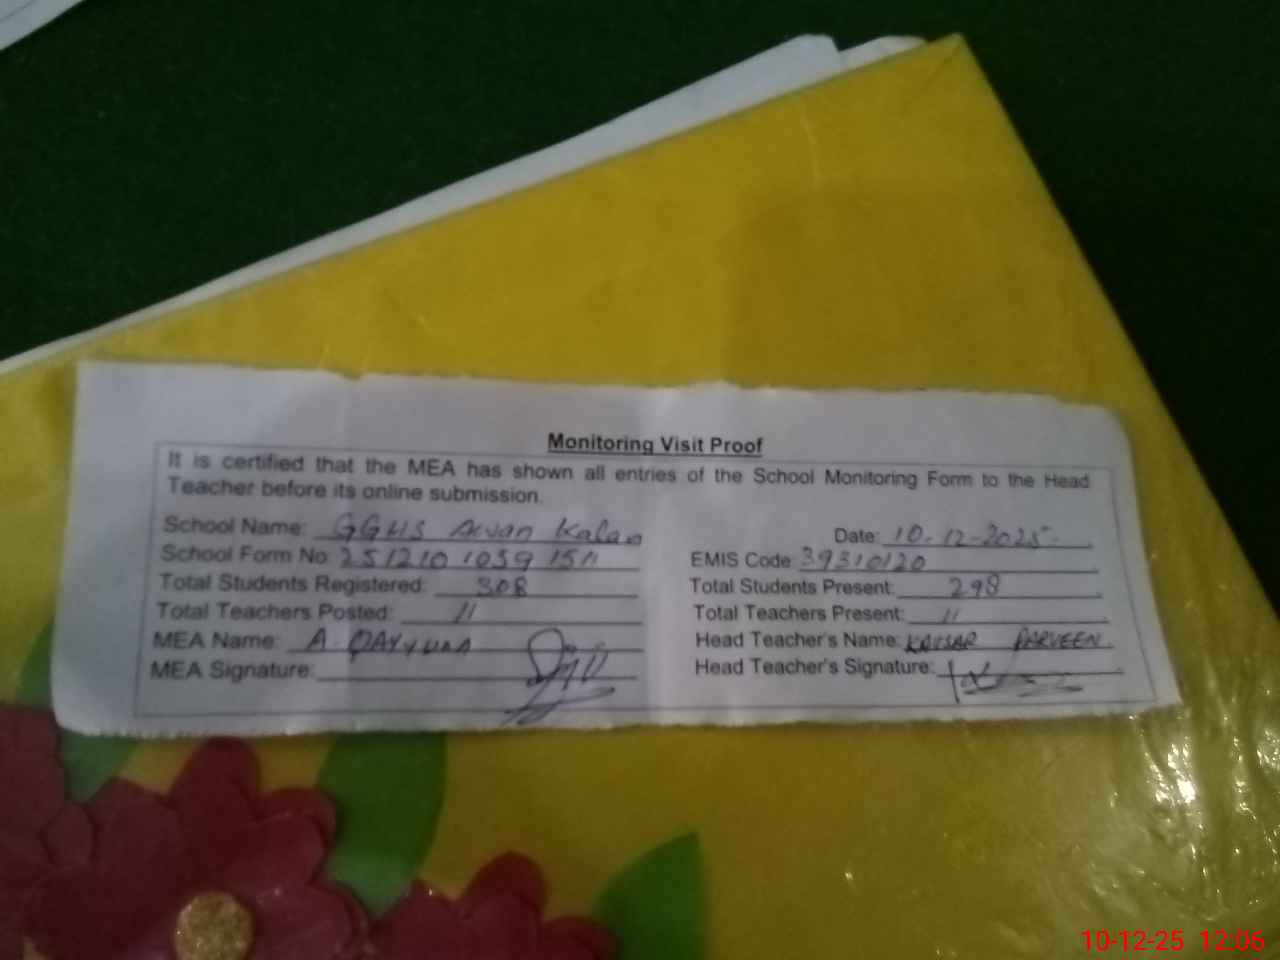 Monitoring Visit Proof
It is certified that the MEA has shown all entries of the School Monitoring Form to the Head
Teacher before its online submission.
School Name: GGHS Arvan Kalan Date: 10-12-2025
School Form No: 251210 1059 1511 EMIS Code: 39310120
Total Students Registered: 308 Total Students Present: 298
Total Teachers Posted: 11 Total Teachers Present: 11
MEA Name: A. QAYYUM Head Teacher's Name: KAUSAR PARVEEN
MEA Signature: Head Teacher's Signature:
10-12-25 12:06